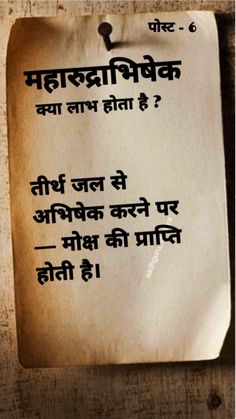 पोस्ट - 6
महारुद्राभिषेक
क्या लाभ होता है ?
तीर्थ जल से
अभिषेक करने पर
— मोक्ष की प्राप्ति
होती है।